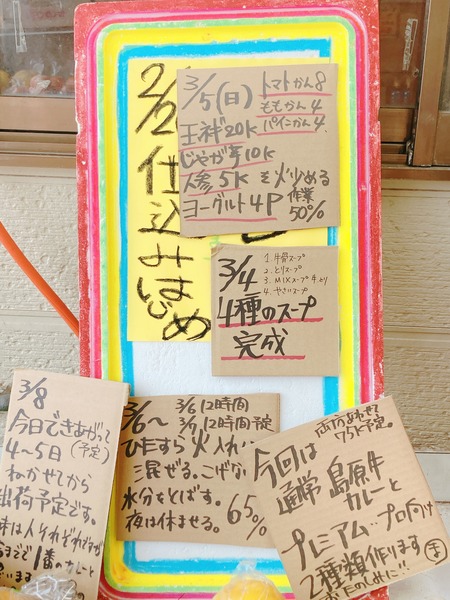 2/2
仕込みはじめ
3/5(日)
トマトかん8
ももかん4
パインかん4
玉ネギ20K
じゃが芋10K
人参5K を火炒める
作業
50%
ヨーグルト4P
3/4
1. 牛骨スープ
2. とりスープ
3. MIXスープ
4. やさいスープ
4種のスープ
完成
3/6〜
3/6 12時間
3/7 12時間予定
ひたすら火入れ
混ぜる。こげない
水分をとばす。
夜は休ませる。
65%
3/8
今日できあがって
4〜5日(予定)
ねかせてから
出荷予定です。
味は人それぞれ
1番のカレーと
います
両方あわせて
予定。
今回は
通常 島原牛
カレーと
プレミアム・プロ向け
2種類作ります
おたのしみに!!